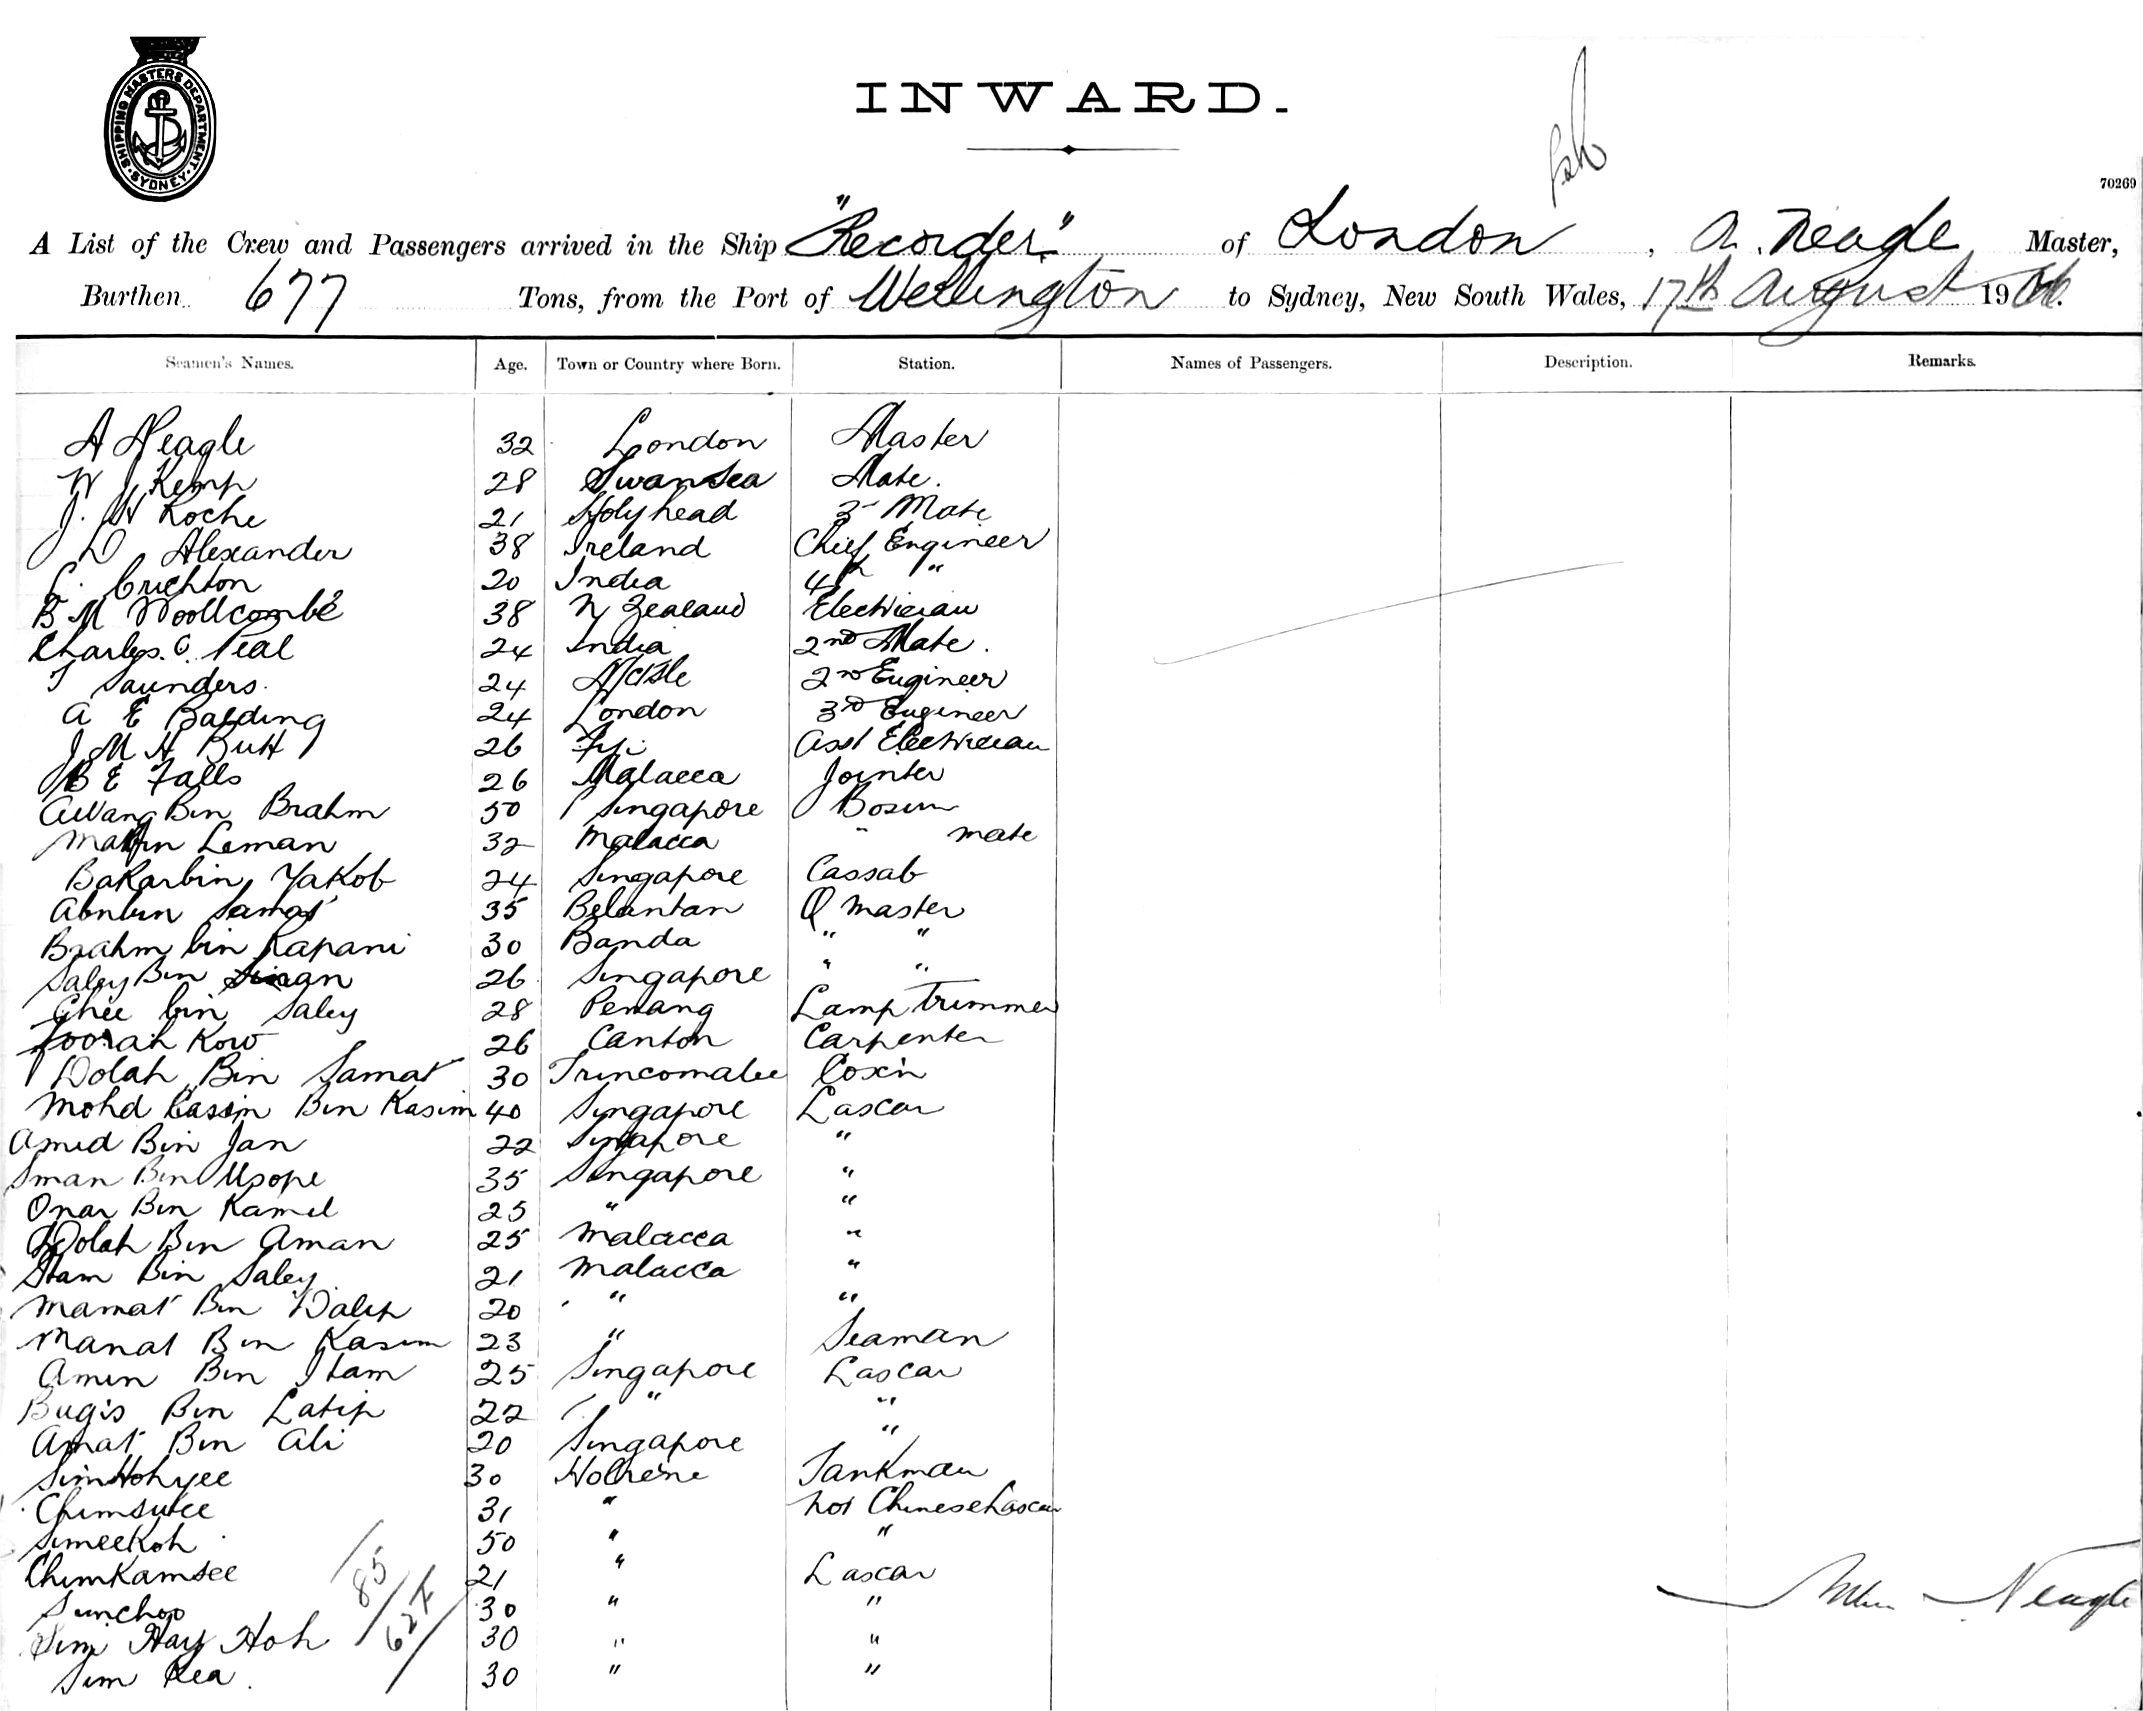 SHIPPING MASTERS DEPARTMENT SYDNEY
INWARD.
70269
A List of the Crew and Passengers arrived in the Ship "Recorder" of London, A. Neagle Master,
Burthen 677 Tons, from the Port of Wellington to Sydney, New South Wales, 17th August 19
Seamen's Names. Age. Town or Country where Born. Station. Names of Passengers. Description. Remarks.
A Neagle 32 London Master
W J Kemp 28 Swansea Mate.
J. W Roche 21 Holyhead 3 Mate
D Alexander 38 Ireland Chief Engineer
C. Crichton 20 India 4th "
B M Woollcombe 38 N Zealand Electrician
Charles. C. Peal 24 India 2nd Mate.
T Saunders. 24 N/Cstle 2nd Engineer
A E Balding 24 London 3rd Engineer
J M H Butt 26 Fiji Asst Electrician
B E Falls 26 Malacca Jointer
Awang Bin Brahm 50 Singapore Bosun
Leman 32 Malacca " mate
Bakarbin Yakob 24 Singapore Cassab
Abubin Samat 35 Belantan Q Master
Brahm bin Rapani 30 Banda " "
Saley Bin Sinan 26 Singapore " "
Ghee bin Saley 28 Penang Lamp Trimmer
Kow 26 Canton Carpenter
Dolah Bin Samat 30 Trincomalee Coxn
Mohd Cassim Bin Kasim 40 Singapore Lascar
Amid Bin Jan 22 Singapore "
Sman Bin Usope 35 Singapore "
Onar Bin Kamel 25 " "
Dolah Bin Aman 25 Malacca "
Itam Bin Saley 21 Malacca "
Mamat Bin Dalip 20 " "
Manat Bin Kasim 23 " Seaman
Amin Bin Itam 25 Singapore Lascar
Bugis Bin Latip 22 " "
Amat Bin Ali 20 Singapore "
SimHohyee 30 Tankman
Chimsuee 31 " No1 Chinese Lascar
Simeekoh 50 " "
Chimkamsee 21 " Lascar
Sunchop 30 " "
Sim Hay Hoh 30 " "
Sim Kea. 30 " "
85
627
Neagle